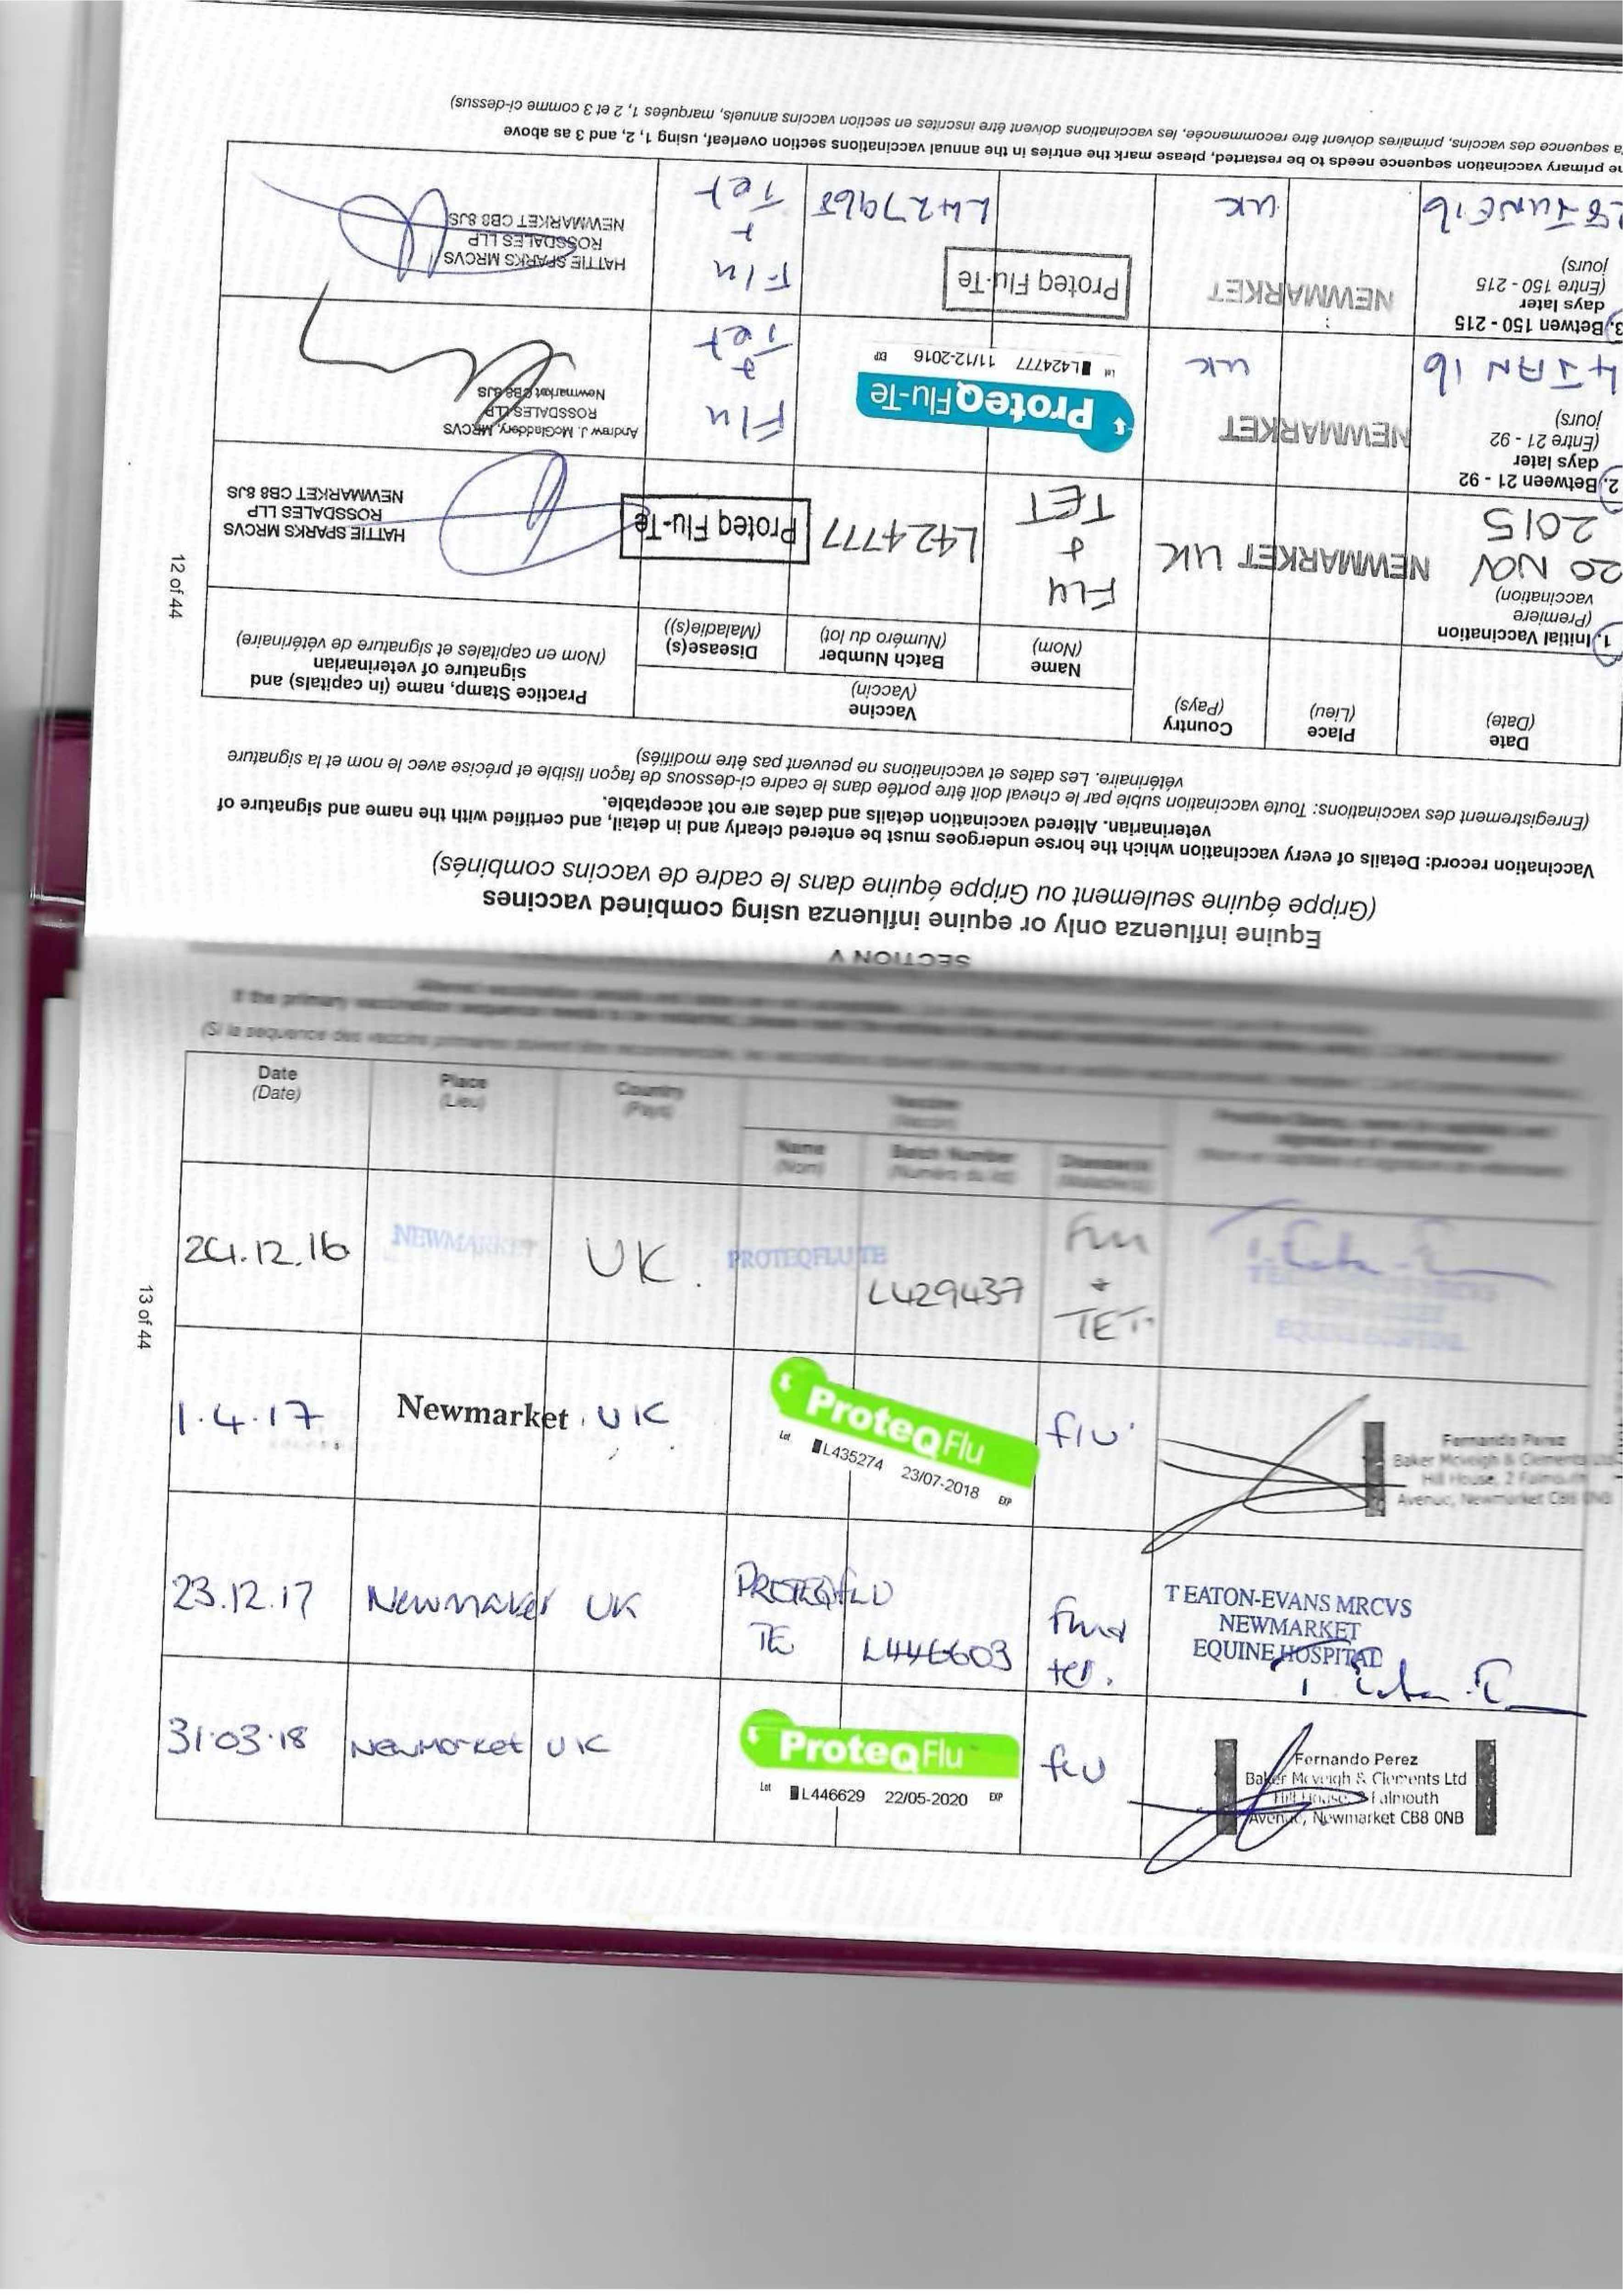 SECTION V
Equine influenza only or equine influenza using combined vaccines
(Grippe équine seulement ou Grippe équine dans le cadre de vaccins combinés)
Vaccination record: Details of every vaccination which the horse undergoes must be entered clearly and in detail, and certified with the name and signature of
veterinarian. Altered vaccination details and dates are not acceptable.
(Enregistrement des vaccinations: Toute vaccination subie par le cheval doit être portée dans le cadre ci-dessous de façon lisible et précise avec le nom et la signature
vétérinaire. Les dates et vaccinations ne peuvent pas être modifiés)
Date
(Date)
Place
(Lieu)
Country
(Pays)
Vaccine
(Vaccin)
Name
(Nom)
Batch Number
(Numéro du lot)
Disease(s)
(Maladie(s))
Practice Stamp, name (in capitals) and
signature of veterinarian
(Nom en capitales et signature de vétérinaire)
1. Initial Vaccination
(Premiere
vaccination)
20 NOV
2015
NEWMARKET UK
FLU
+
TET
L424777
Proteq Flu-Te
HATTIE SPARKS MRCVS
ROSSDALES LLP
NEWMARKET CB8 8JS
2. Between 21 - 92
days later
(Entre 21 - 92
jours)
4 JAN 16
NEWMARKET
UK
ProteqFlu-Te
Lot L424777 11/12-2016 EXP
Flu
+
Tet
Andrew J. McGladdery, MRCVS
ROSSDALES LLP
Newmarket CB8 8JS
3. Betwen 150 - 215
days later
(Entre 150 - 215
jours)
28 JUNE 16
NEWMARKET
UK
Proteq Flu-Te
L427968
Flu
+
Tet
HATTIE SPARKS MRCVS
ROSSDALES LLP
NEWMARKET CB8 8JS
primary vaccination sequence needs to be restarted, please mark the entries in the annual vaccinations section overleaf, using 1, 2, and 3 as above
sequence des vaccins, primaires doivent être recommencée, les vaccinations doivent être inscrites en section vaccins annuels, marquées 1, 2 et 3 comme ci-dessus)
12 of 44
If the primary vaccination sequence needs to be restarted,
(Si la sequence des vaccins primaires doivent être recommencée,
Date
(Date)
Place
(Lieu)
Country
(Pays)
Name
(Nom)
Batch Number
(Numéro du lot)
24.12.16
NEWMARKET
UK.
PROTEQFLU TE
L429437
Flu
+
TET.
1.4.17
Newmarket UK
ProteqFlu
Lot L435274 23/07-2018 EXP
flu
Fernando Perez
Baker Mcveigh & Clements Ltd
Hill House, 2 Falmouth
Avenue, Newmarket CB8 0NB
23.12.17
Newmarket UK
PROTEQFLU
TE
L446603
Flu+
tet.
T EATON-EVANS MRCVS
NEWMARKET
EQUINE HOSPITAL
31.03.18
Newmarket UK
ProteqFlu
Lot L446629 22/05-2020 EXP
flu
Fernando Perez
Baker Mcveigh & Clements Ltd
Hill House, 2 Falmouth
Avenue, Newmarket CB8 0NB
13 of 44